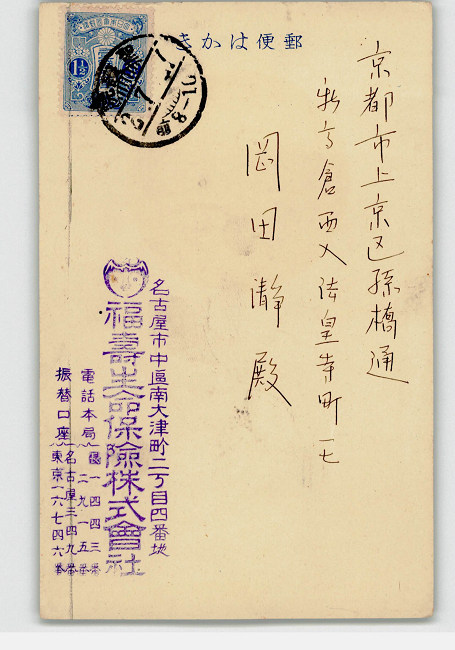 郵便はかき
京都市上京区孫橋通
新高倉西入法皇寺町一七
岡田静殿
名古屋市中區南大津町二丁目四番地
福壽生命保險株式會社
電話本局
一四四三番
二九一五番
振替口座
名古屋三四九番
東京一六七四六番
1½